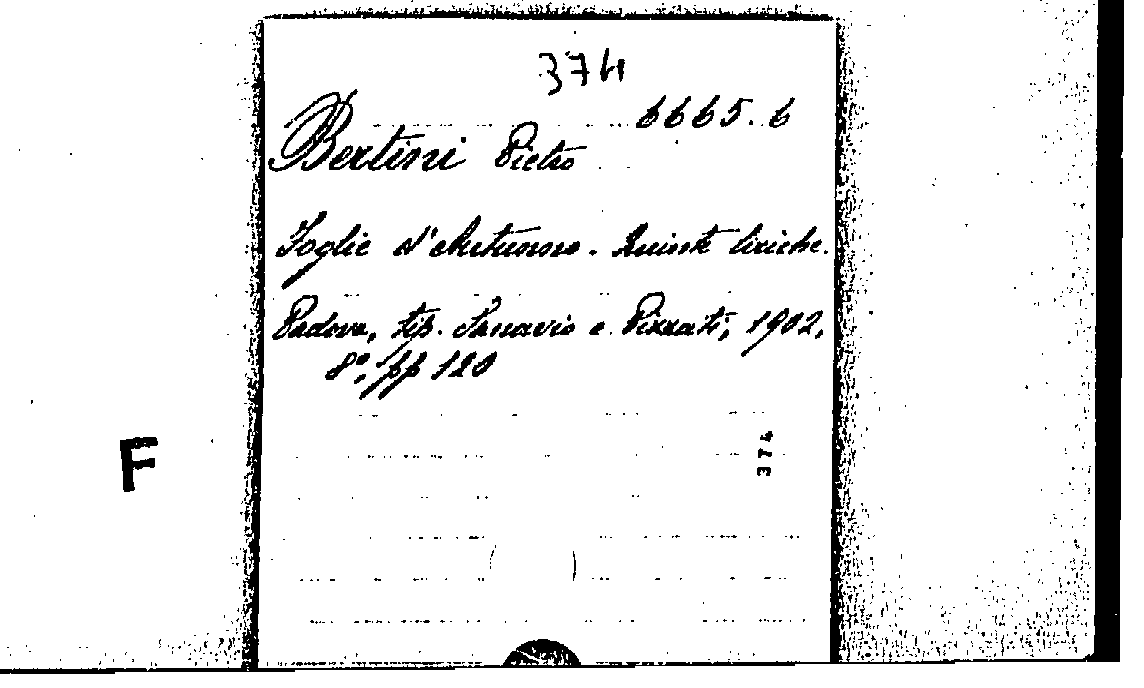 374
6665.6
Bertini Pietro
Foglie d'Autunno. Quinte liriche.
Padova, tip. Sanavio e Pizzati, 1902,
8°, pp 120
374
F